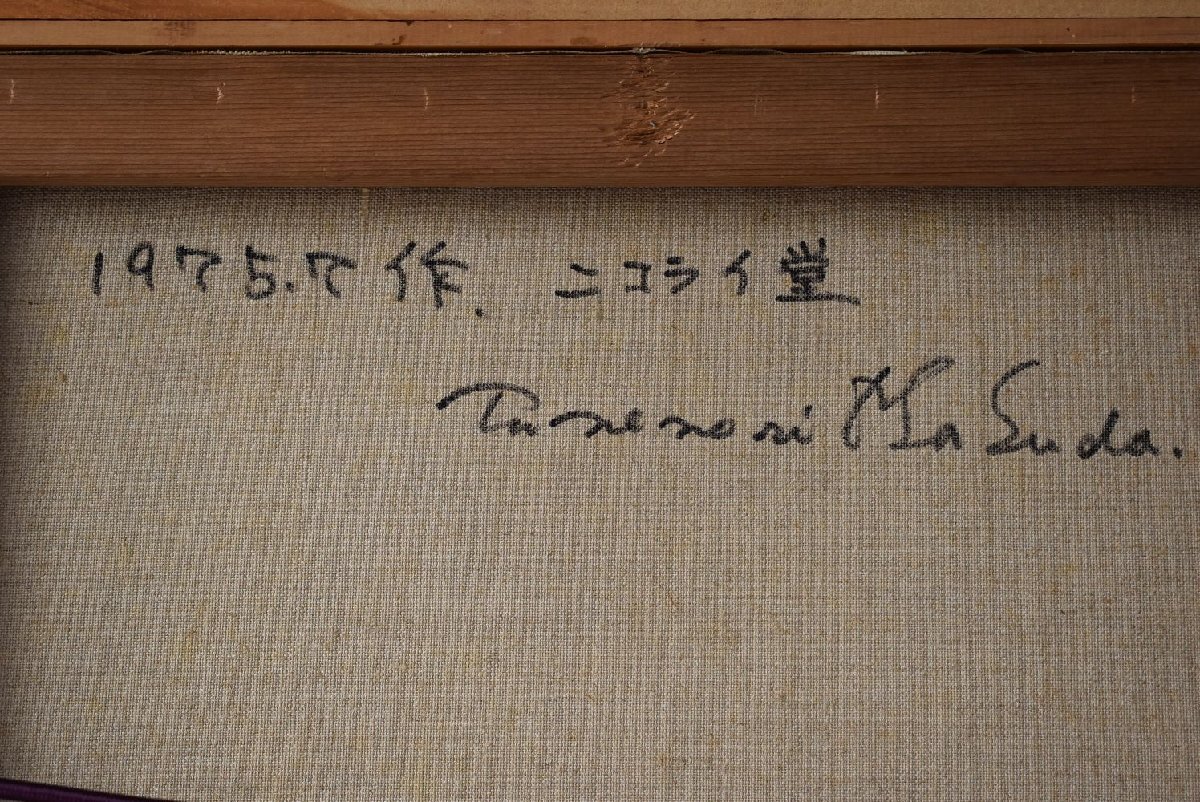 1975.7作. ニコライ堂
Tunenori MaSuda.